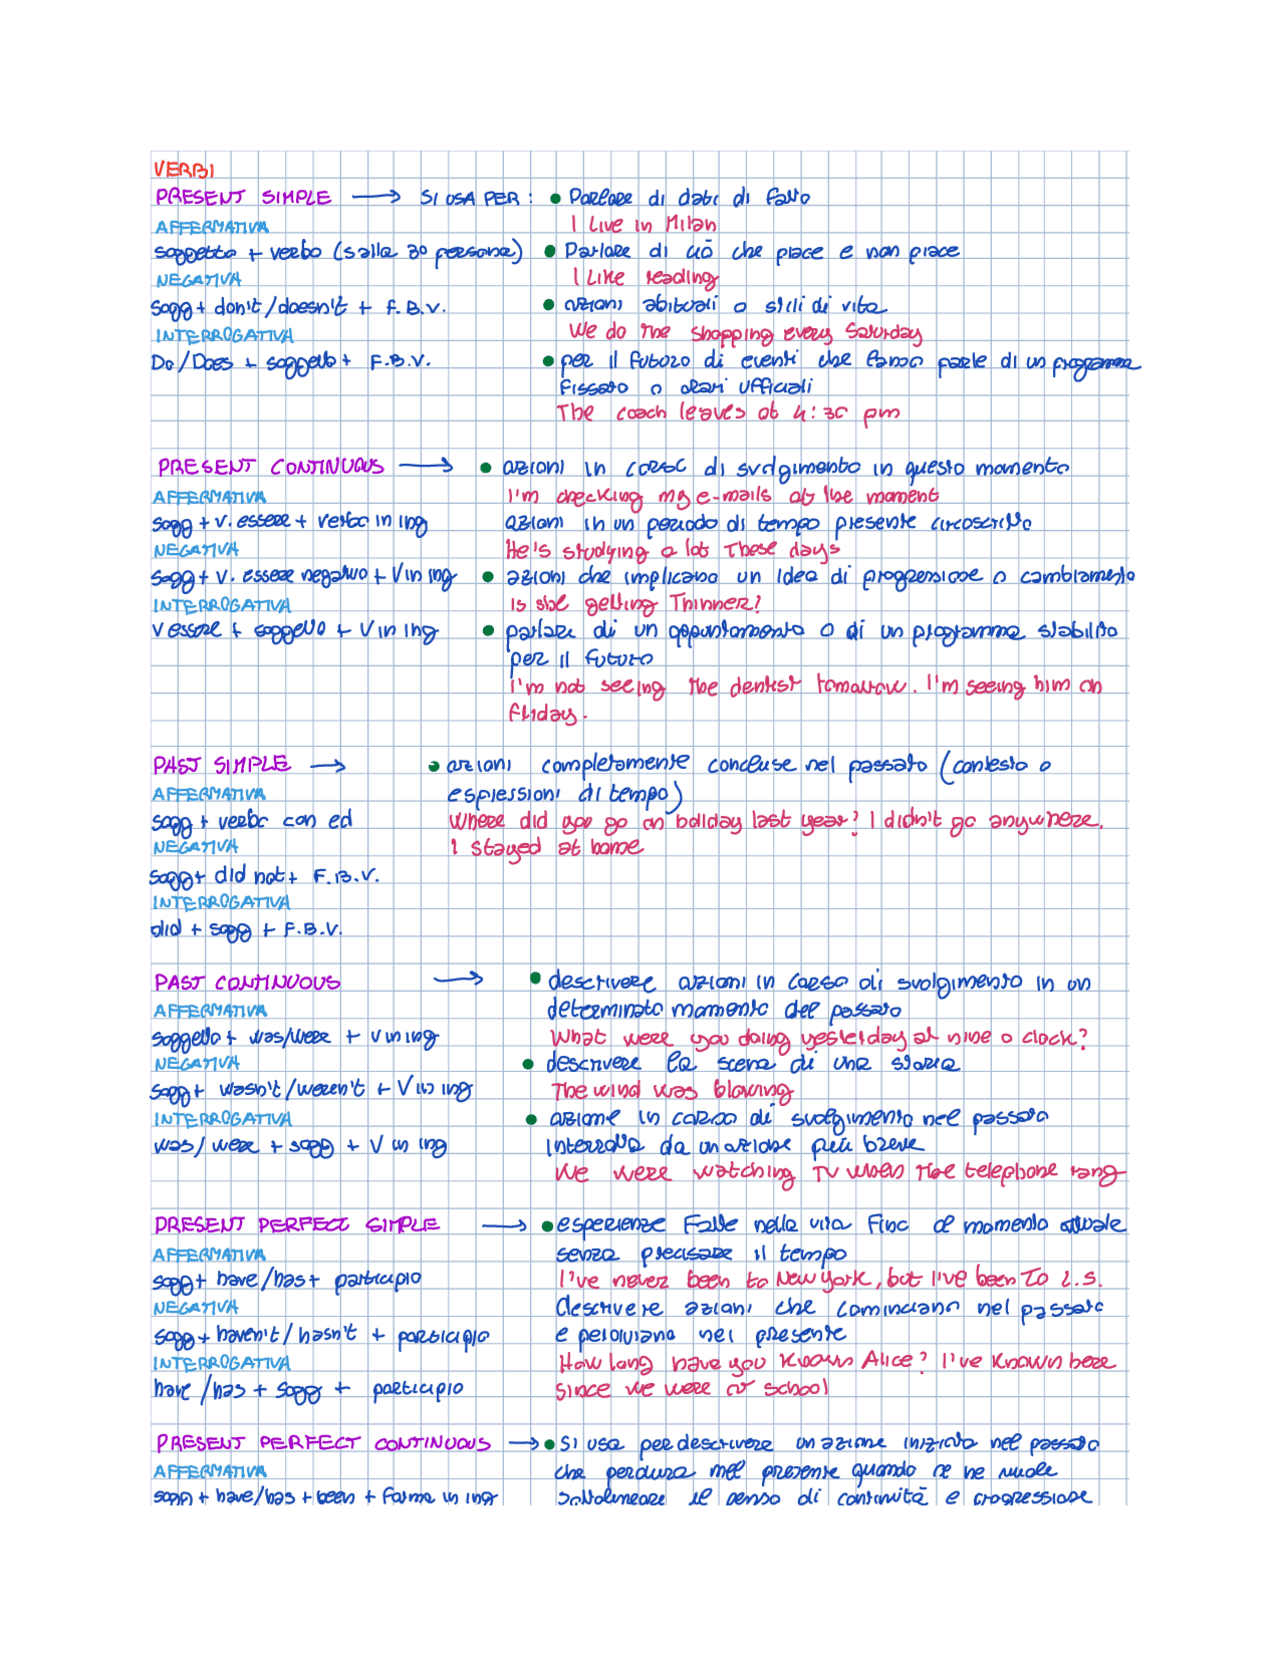 VERBI
PRESENT SIMPLE → SI USA PER: • Parlare di dati di fatto
AFFERMATIVA
I live in Milan
soggetto + verbo (s alla 3a persona) • Parlare di ciò che piace e non piace
NEGATIVA
I like reading
sogg + don't/doesn't + F.B.V. • azioni abituali o stili di vita
INTERROGATIVA
We do the shopping every Saturday
Do/Does + soggetto + F.B.V. • per il futuro di eventi che fanno parte di un programma
fissato o orari ufficiali
The coach leaves at 4:30 pm
PRESENT CONTINUOUS → • azioni in corso di svolgimento in questo momento
AFFERMATIVA
I'm checking my e-mails at the moment
sogg + v. essere + verbo in ing azioni in un periodo di tempo presente circoscritto
NEGATIVA
He's studying a lot these days
sogg + v. essere negativo + V in ing • azioni che implicano un idea di progressione o cambiamento
INTERROGATIVA
Is she getting thinner?
v essere + soggetto + V in ing • parlare di un appuntamento o di un programma stabilito
per il futuro
I'm not seeing the dentist tomorrow. I'm seeing him on
friday.
PAST SIMPLE → • azioni completamente concluse nel passato (contesto o
AFFERMATIVA espressioni di tempo)
sogg + verbo con ed Where did you go on holiday last year? I didn't go anywhere.
NEGATIVA I stayed at home
sogg + did not + F.B.V.
INTERROGATIVA
did + sogg + F.B.V.
PAST CONTINUOUS → • descrivere azioni in corso di svolgimento in un
AFFERMATIVA determinato momento del passato
soggetto + was/were + v in ing What were you doing yesterday at nine o clock?
NEGATIVA • descrivere la scena di una storia
sogg + wasn't/weren't + V in ing The wind was blowing
INTERROGATIVA • azione in corso di svolgimento nel passato
was/were + sogg + V in ing interrotta da un azione più breve
We were watching TV when the telephone rang
PRESENT PERFECT SIMPLE → • esperienze fatte nella vita fino al momento attuale
AFFERMATIVA senza precisare il tempo
sogg + have/has + participio I've never been to New York, but I've been to L.S.
NEGATIVA descrivere azioni che cominciano nel passato
sogg + haven't/hasn't + participio e nel presente
INTERROGATIVA How long have you known Alice? I've known here
have/has + sogg + participio since we were at school
PRESENT PERFECT CONTINUOUS → • si usa per descrivere un azione iniziata nel passato
AFFERMATIVA che perdura nel presente quando se ne vuole
sogg + have/has + been + forma in ing sottolineare il senso di continuità e progressione